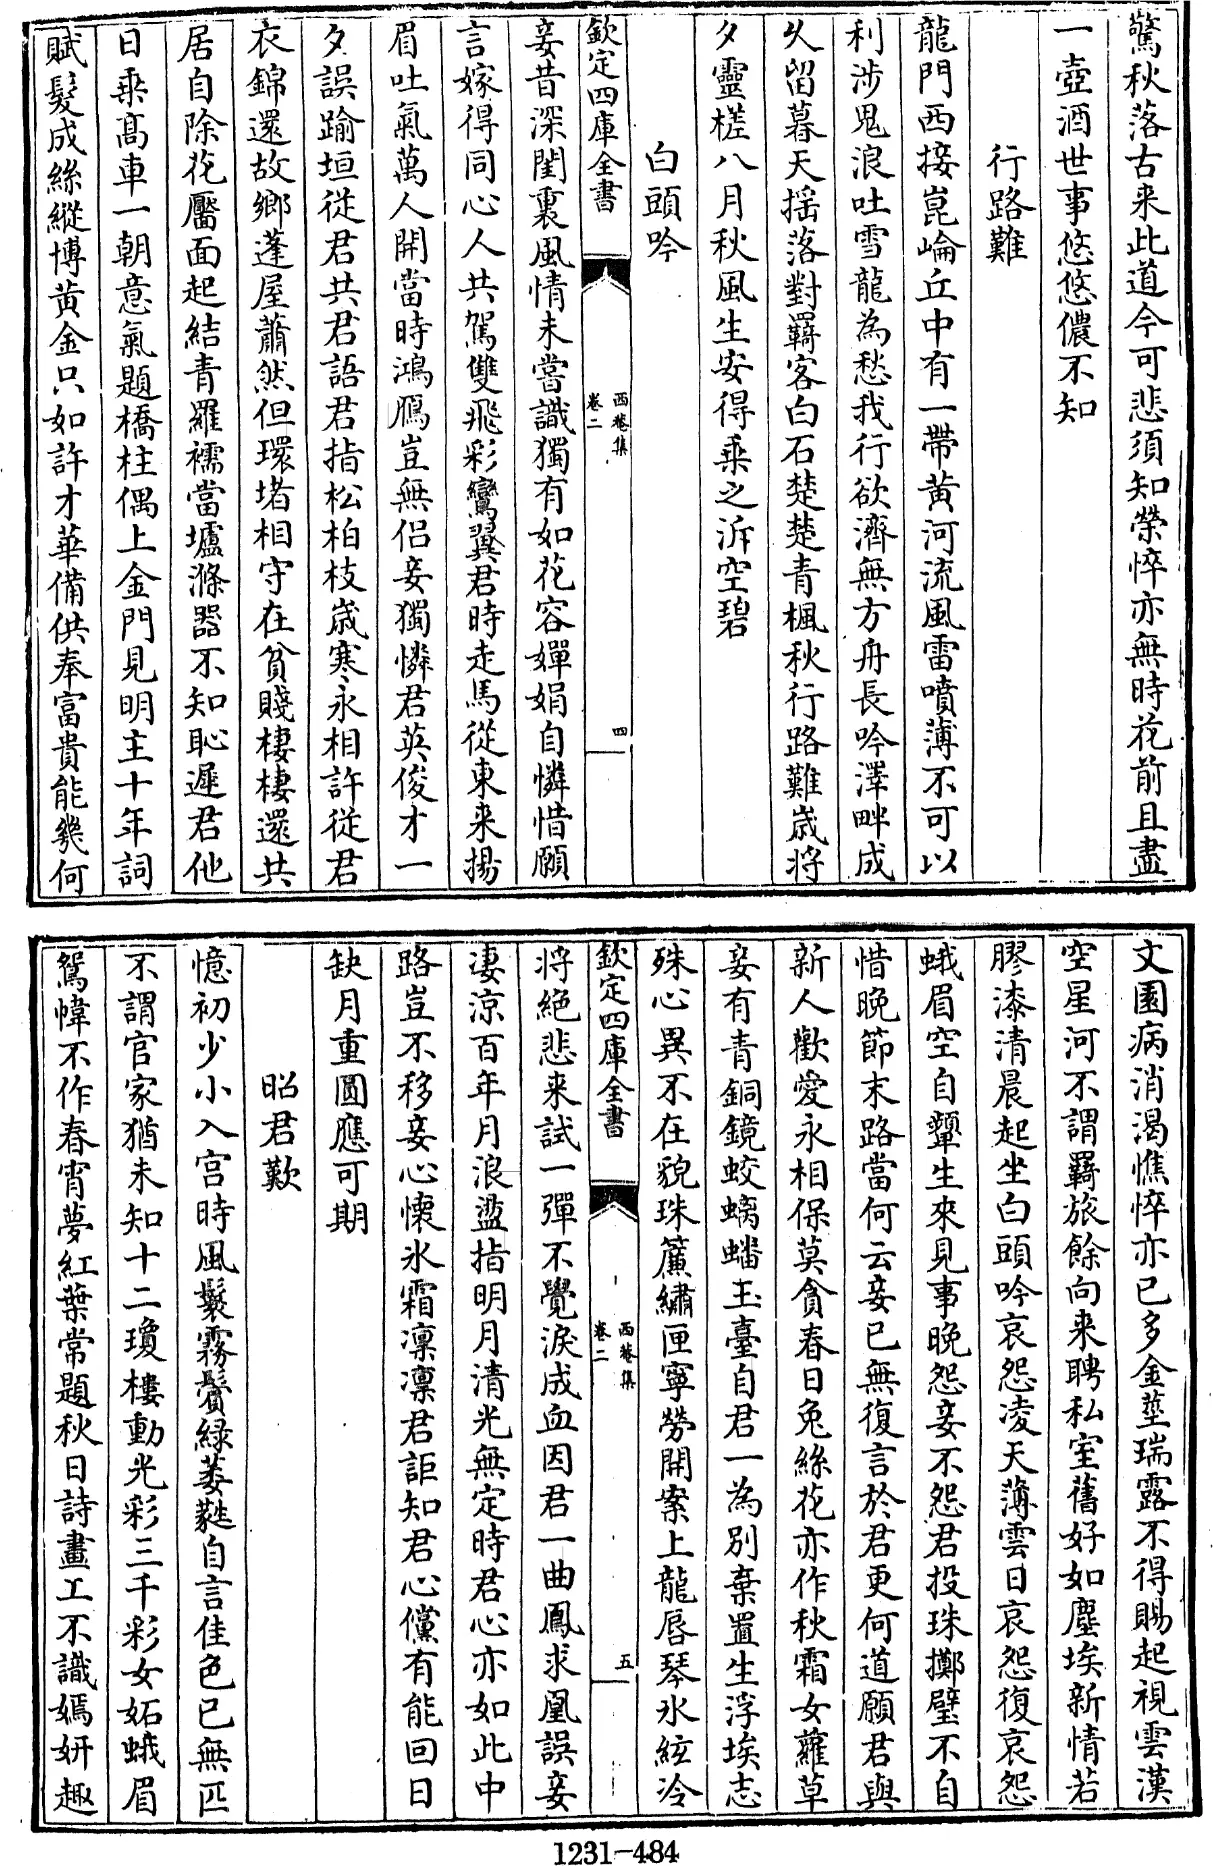 驚秋落古来此道今可悲須知榮悴亦無時花前且盡
一壺酒世事悠悠儂不知
行路難
龍門西接崑崘丘中有一帶黃河流風雷噴薄不可以
利涉鬼浪吐雪龍為愁我行欲濟無方舟長吟澤畔成
久留暮天揺落對羇客白石楚楚青楓秋行路難歳将
夕靈槎八月秋風生安得乗之泝空碧
白頭吟
欽定四庫全書
西菴集
卷二
四
妾昔深閨裏風情未嘗識獨有如花容嬋娟自憐惜願
言嫁得同心人共駕雙飛彩鸞翼君時走馬從東来揚
眉吐氣萬人開當時鴻鴈豈無侣妾獨憐君英俊才一
夕誤踰垣從君共君語君指松柏枝歳寒永相許從君
衣錦還故鄉蓬屋蕭然但環堵相守在貧賤棲棲還共
居自除花靨面起結青羅襦當壚滌器不知恥遲君他
日乗髙車一朝意氣題橋柱偶上金門見明主十年詞
賦髮成絲縱博黃金只如許才華備供奉富貴能幾何
文園病消渴憔悴亦已多金莖瑞露不得賜起視雲漢
空星河不謂羇旅餘向来聘私室舊好如塵埃新情若
膠漆清晨起坐白頭吟哀怨凌天薄雲日哀怨復哀怨
蛾眉空自顰生來見事晚怨妾不怨君投珠擲璧不自
惜晚節末路當何云妾已無復言於君更何道願君與
新人歡愛永相保莫貪春日兔絲花亦作秋霜女蘿草
妾有青銅鏡蛟螭蟠玉臺自君一為別棄置生浮埃志
殊心異不在貌珠簾繡匣寧勞開案上龍唇琴氷絃冷
欽定四庫全書
西菴集
卷二
五
将絕悲来試一彈不覺淚成血因君一曲鳳求凰誤妾
凄涼百年月浪盜指明月清光無定時君心亦如此中
路豈不移妾心懷氷霜凛凛君詎知君心儻有能回日
缺月重圓應可期
昭君歎
憶初少小入宫時風鬟霧鬢綠葳蕤自言佳色已無匹
不謂官家猶未知十二瓊樓動光彩三千彩女妬蛾眉
鴛幃不作春宵夢紅葉常題秋日詩畫工不識嫣妍趣
1231-484